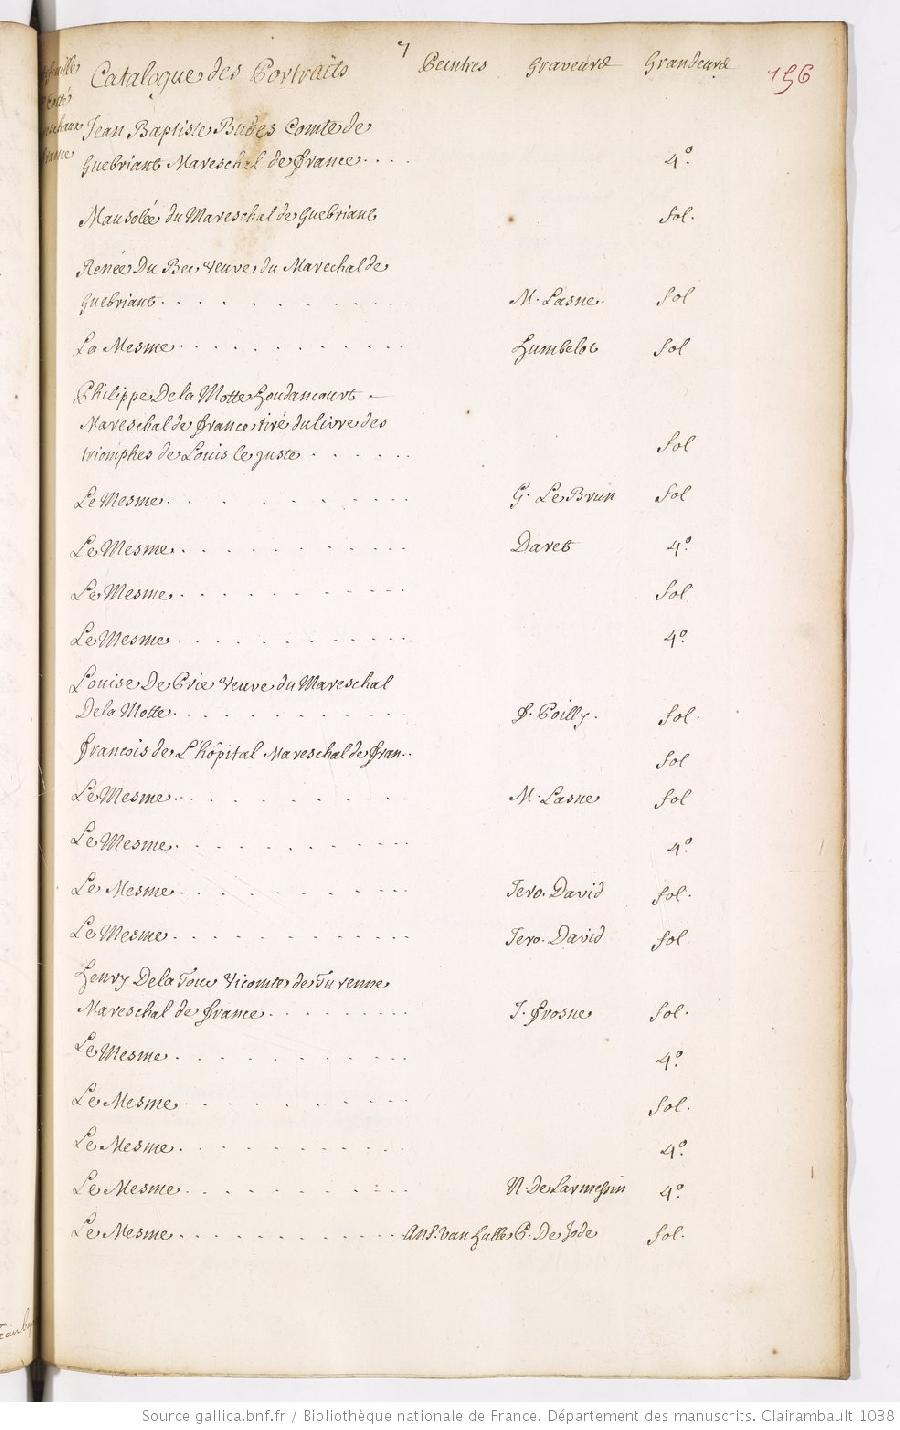 7
Catalogue des Portraits Peintres Graveurs Grandeurs 156
Jean Baptiste Budes Comte de
Guebriant Mareschal de france . . . . 4º
Mausolée du Mareschal de Guebriant fol.
Renée Du Bec Veuve du Marechal de
Guebriant . . . . . . . . . . M. Lasne. fol
La Mesme . . . . . . . . . . . Humbelot fol
Philippe De la Motte Houdancourt
Mareschal de france tiré du livre des
triomphes de Louis le juste . . . . . . fol
Le Mesme . . . . . . . . . G. Le Brun fol
Le Mesme . . . . . . . . . . . Daret 4º
Le Mesme . . . . . . . . . . . fol
Le Mesme . . . . . . . . . . . 4º
Louise De Prie Veuve du Mareschal
De la Motte . . . . . . . . . . . f. Poilly. fol.
francois de L'hôpital Mareschal de fran.. fol
Le Mesme . . . . . . . . . . M. Lasne fol
Le Mesme . . . . . . . . . . . 4º
Le Mesme . . . . . . . . . . . Jero. David fol.
Le Mesme . . . . . . . . . . . Jero. David fol
Henry De la Tour Vicomte de Turenne
Mareschal de france . . . . . . . . J. frosne fol.
Le Mesme . . . . . . . . . . . 4º
Le Mesme . . . . . . . . . . fol.
Le Mesme . . . . . . . . . . . 4º
Le Mesme . . . . . . . . . . . N. De Larmessin 4º
Le Mesme . . . . . . . . . . . . Ans. van Hulle P. De Jode fol.
Source gallica.bnf.fr / Bibliothèque nationale de France. Département des manuscrits. Clairambault 1038